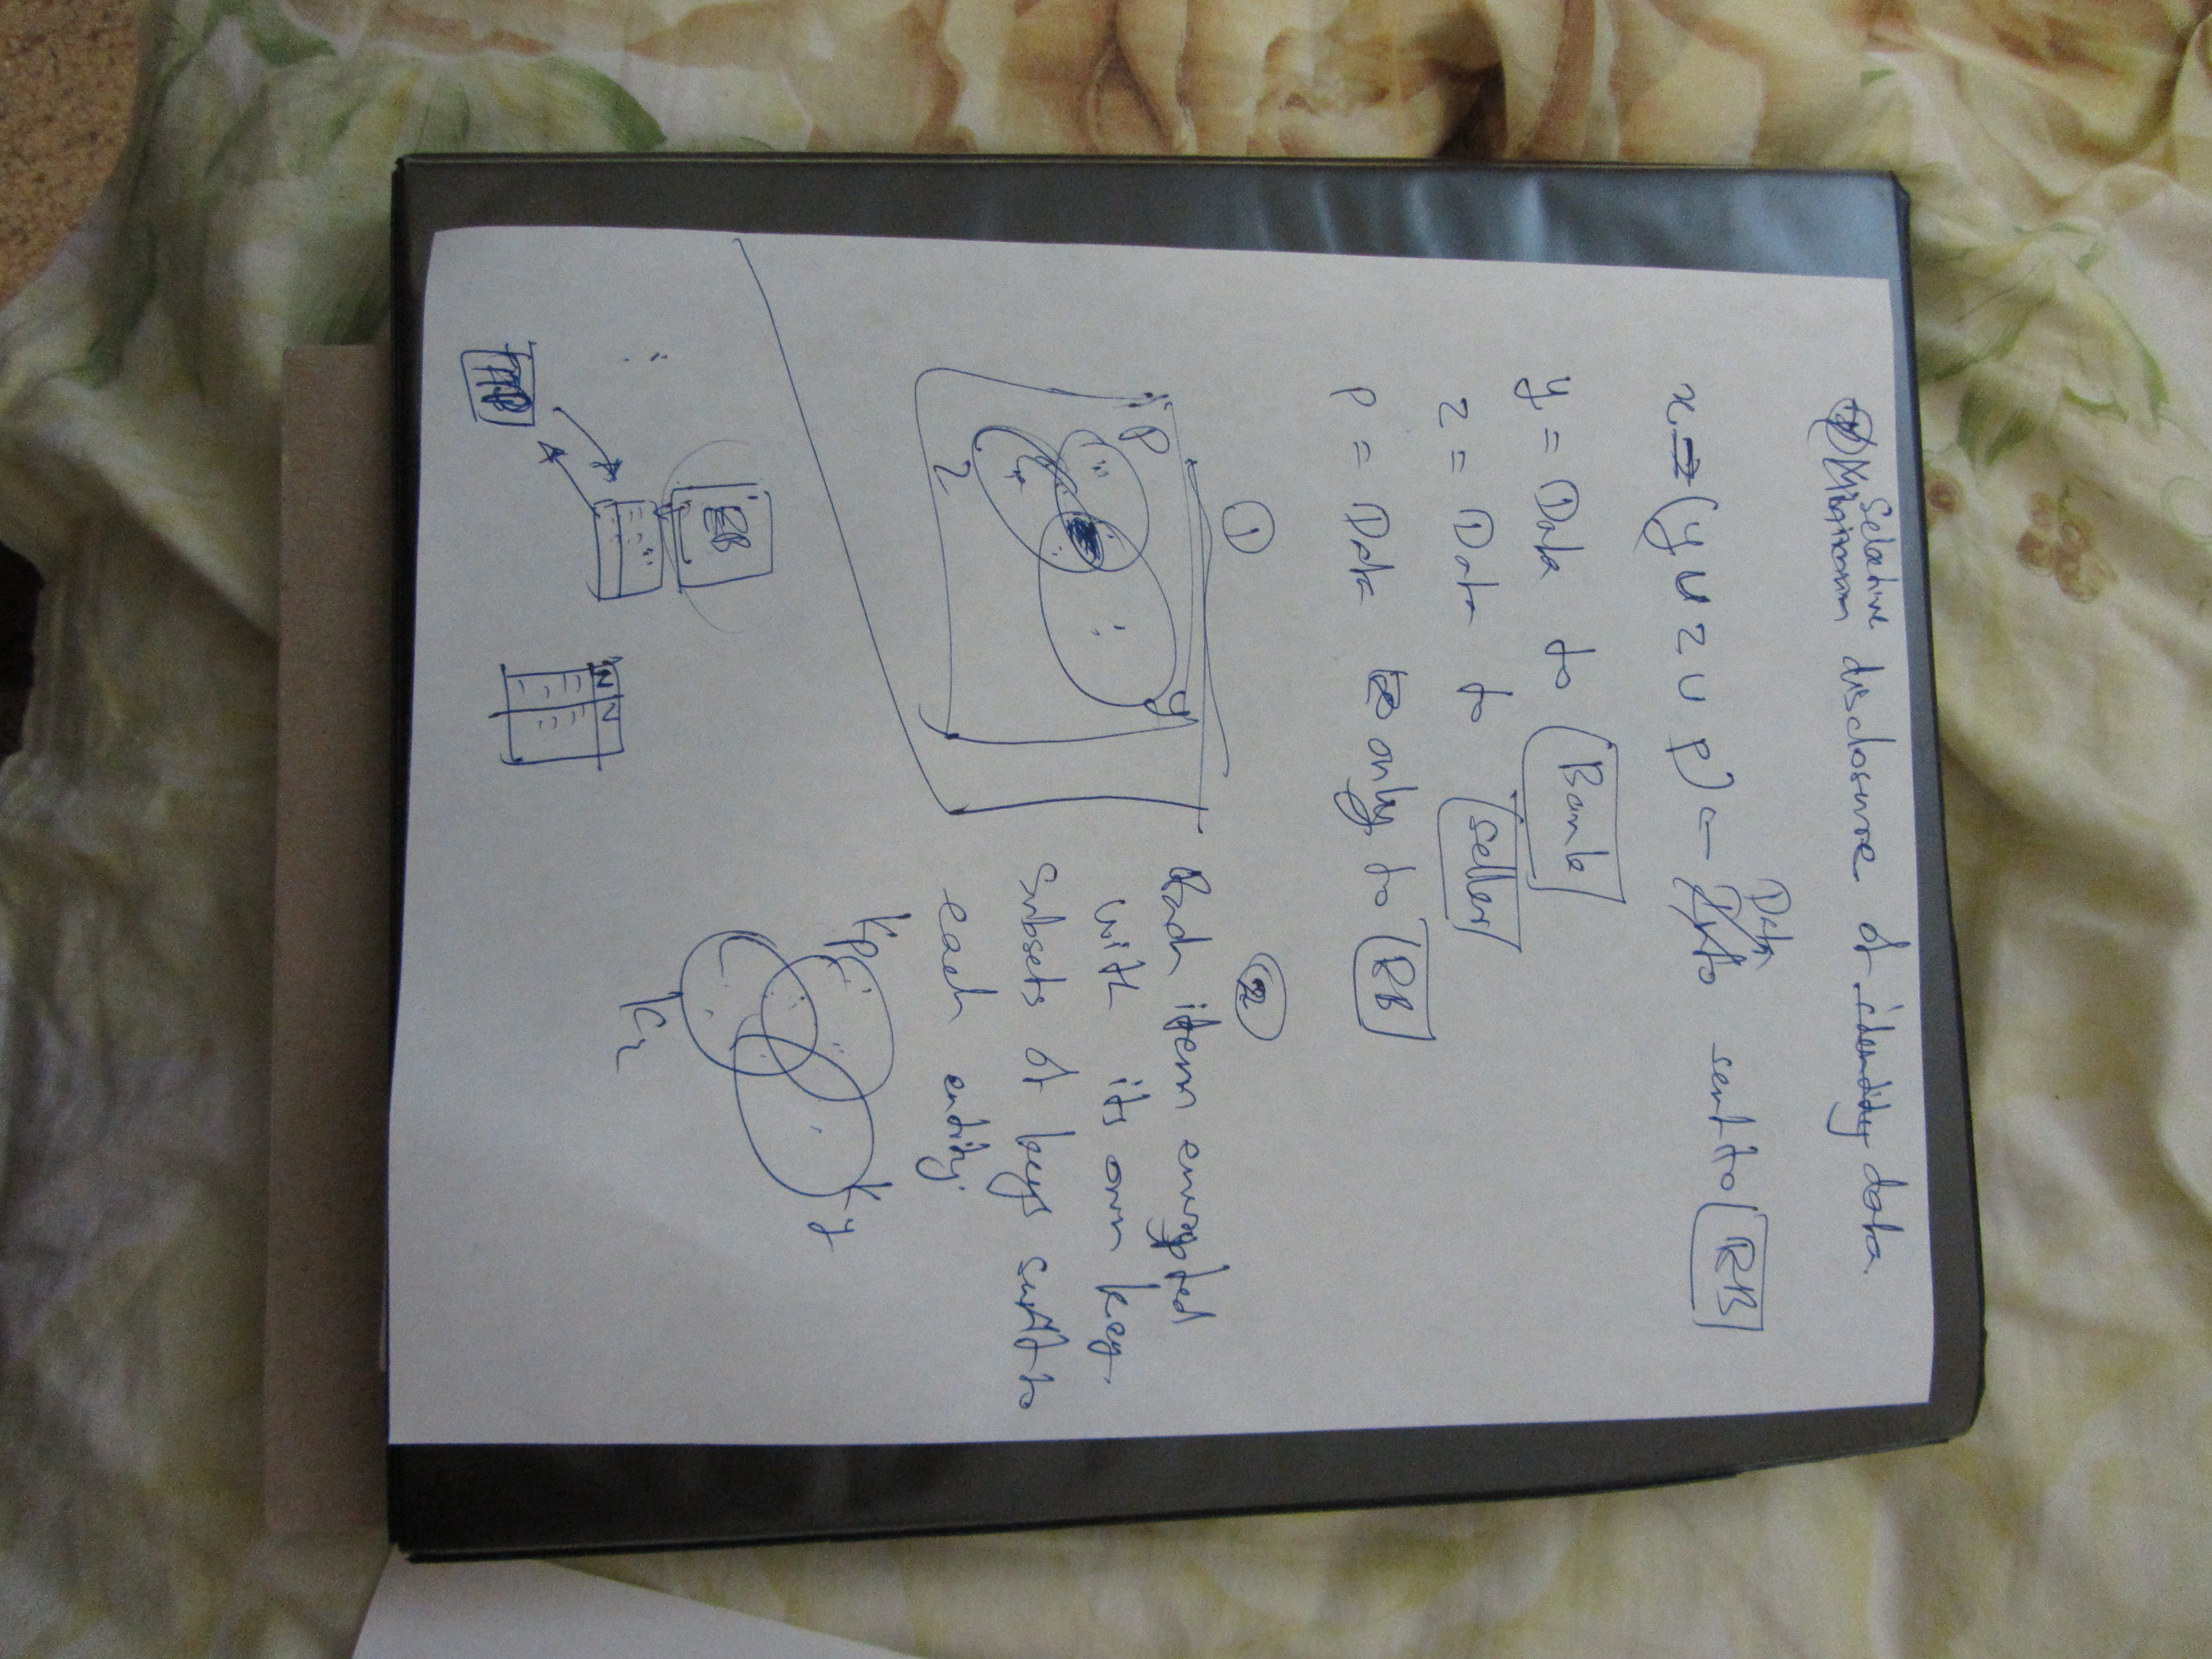 Selective
Minimum disclosure of identity data.
x = (y ∪ z ∪ p) ← Data sent to RB
y = Data to Bank
z = Data to seller
p = Data only to RB
①
P
y
z
②
Each item encrypted
with its own key.
Subsets of keys sent to
each entity.
Kp
Ky
Kz